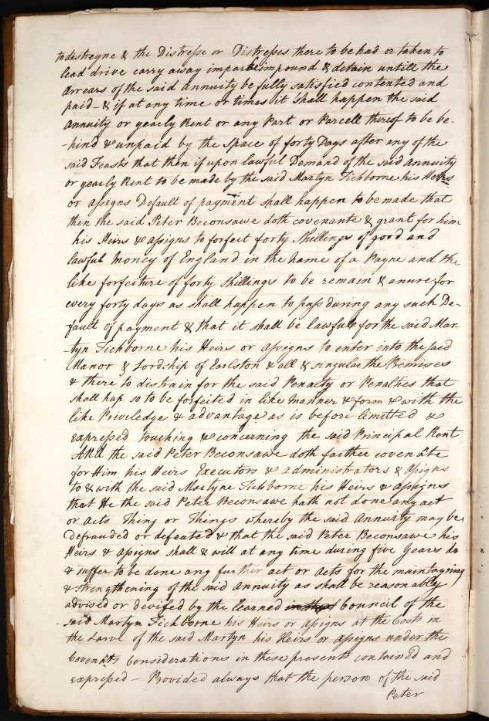 to destreyne & the Distresse or Distresses there to be had or taken to
lead drive carry away impaire impound & detain untill the
Arrears of the said Annuity be fully satisfied contented and
paid – & if at any time or times it shall happen the said
Annuity or yearly Rent or any Part or Parcell thereof to be be-
-hind & unpaid by the Space of forty Days after any of the
said Feasts that then if upon lawful Demand of the said Annuity
or yearly Rent to be made by the said Martyn Tichborne his Heirs
or assigns Default of payment shall happen to be made that
then the said Peter Beconsawe doth covenante & grant for him
his Heirs & assigns to forfeit forty Shillings of good and
lawful Money of England in the name of a Payne and the
like forfeiture of forty shillings to be remain & enure for
every forty days as shall happen to pass during any such De-
fault of payment & that it shall be lawful for the said Mar-
-tyn Tichborne his Heirs or assigns to enter into the said
Manor & Lordship of Earlston & all & singular the Premises
& there to distrain for the said Penalty or Penalties that
shall hap so to be forfeited in like manner & form & with the
like Priviledge & advantage as is before limitted &
expressed touching & concerning the said Principal Rent
And the said Peter Beconsawe doth farther covenante
for Him his Heirs Executors & administrators & assigns
to & with the said Martyne Tichborne his Heirs & assigns
that He the said Peter Beconsawe hath not done any act
or Acts Thing or Things whereby the said Annuity may be
Defrauded or defeated & that the said Peter Beconsawe his
Heirs & assigns shall & will at any time during five Years do
& suffer to be done any further act or Acts for the maintayning
& strengthening of the said Annuity as shall be reasonably
advised or devised by the learned Council of the
said Martyn Tichborne his Heirs or assigns at the Costs in
the Law of the said Martyn his Heirs or assigns under the
Covenants considerations in these presents contained and
expressed – Provided always that the person of the said
Peter